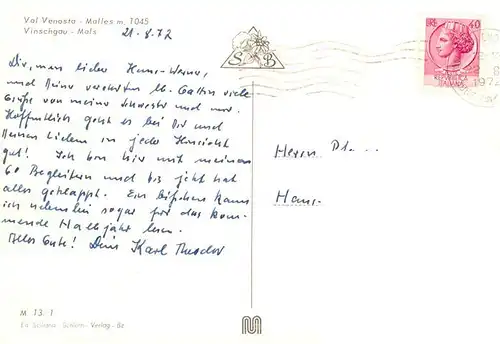 Val Venosta - Malles m. 1045
Vinschgau - Mals
21-8.72
Dir, mein lieber Hans-Werner,
und Deiner verehrten lb. Gattin viele
Grüße von meiner Schwester und mir.
Hoffentlich geht es bei Dir und
Deinen Lieben in jeder Hinsicht
gut! Ich bin hier mit meinen
60 Begleitern und bis jetzt hat
alles geklappt. Ein bißchen kann
ich nebenbei sogar für das kom-
mende Halbjahr lesen.
Alles Gute! Dein Karl Theodor
S B
40
197
Herrn Dr. ...
Hans-
M 13. 1
Verlag - Bz